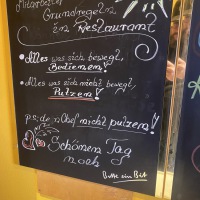 Mitarbeiter
Grundregeln
in Restaurant
• Alles was sich bewegt,
Bedienen!
• Alles was sich nicht bewegt,
Putzen!
p.s: den Chef nicht putzen!!
Schönen Tag
noch
Bitte ein Bit